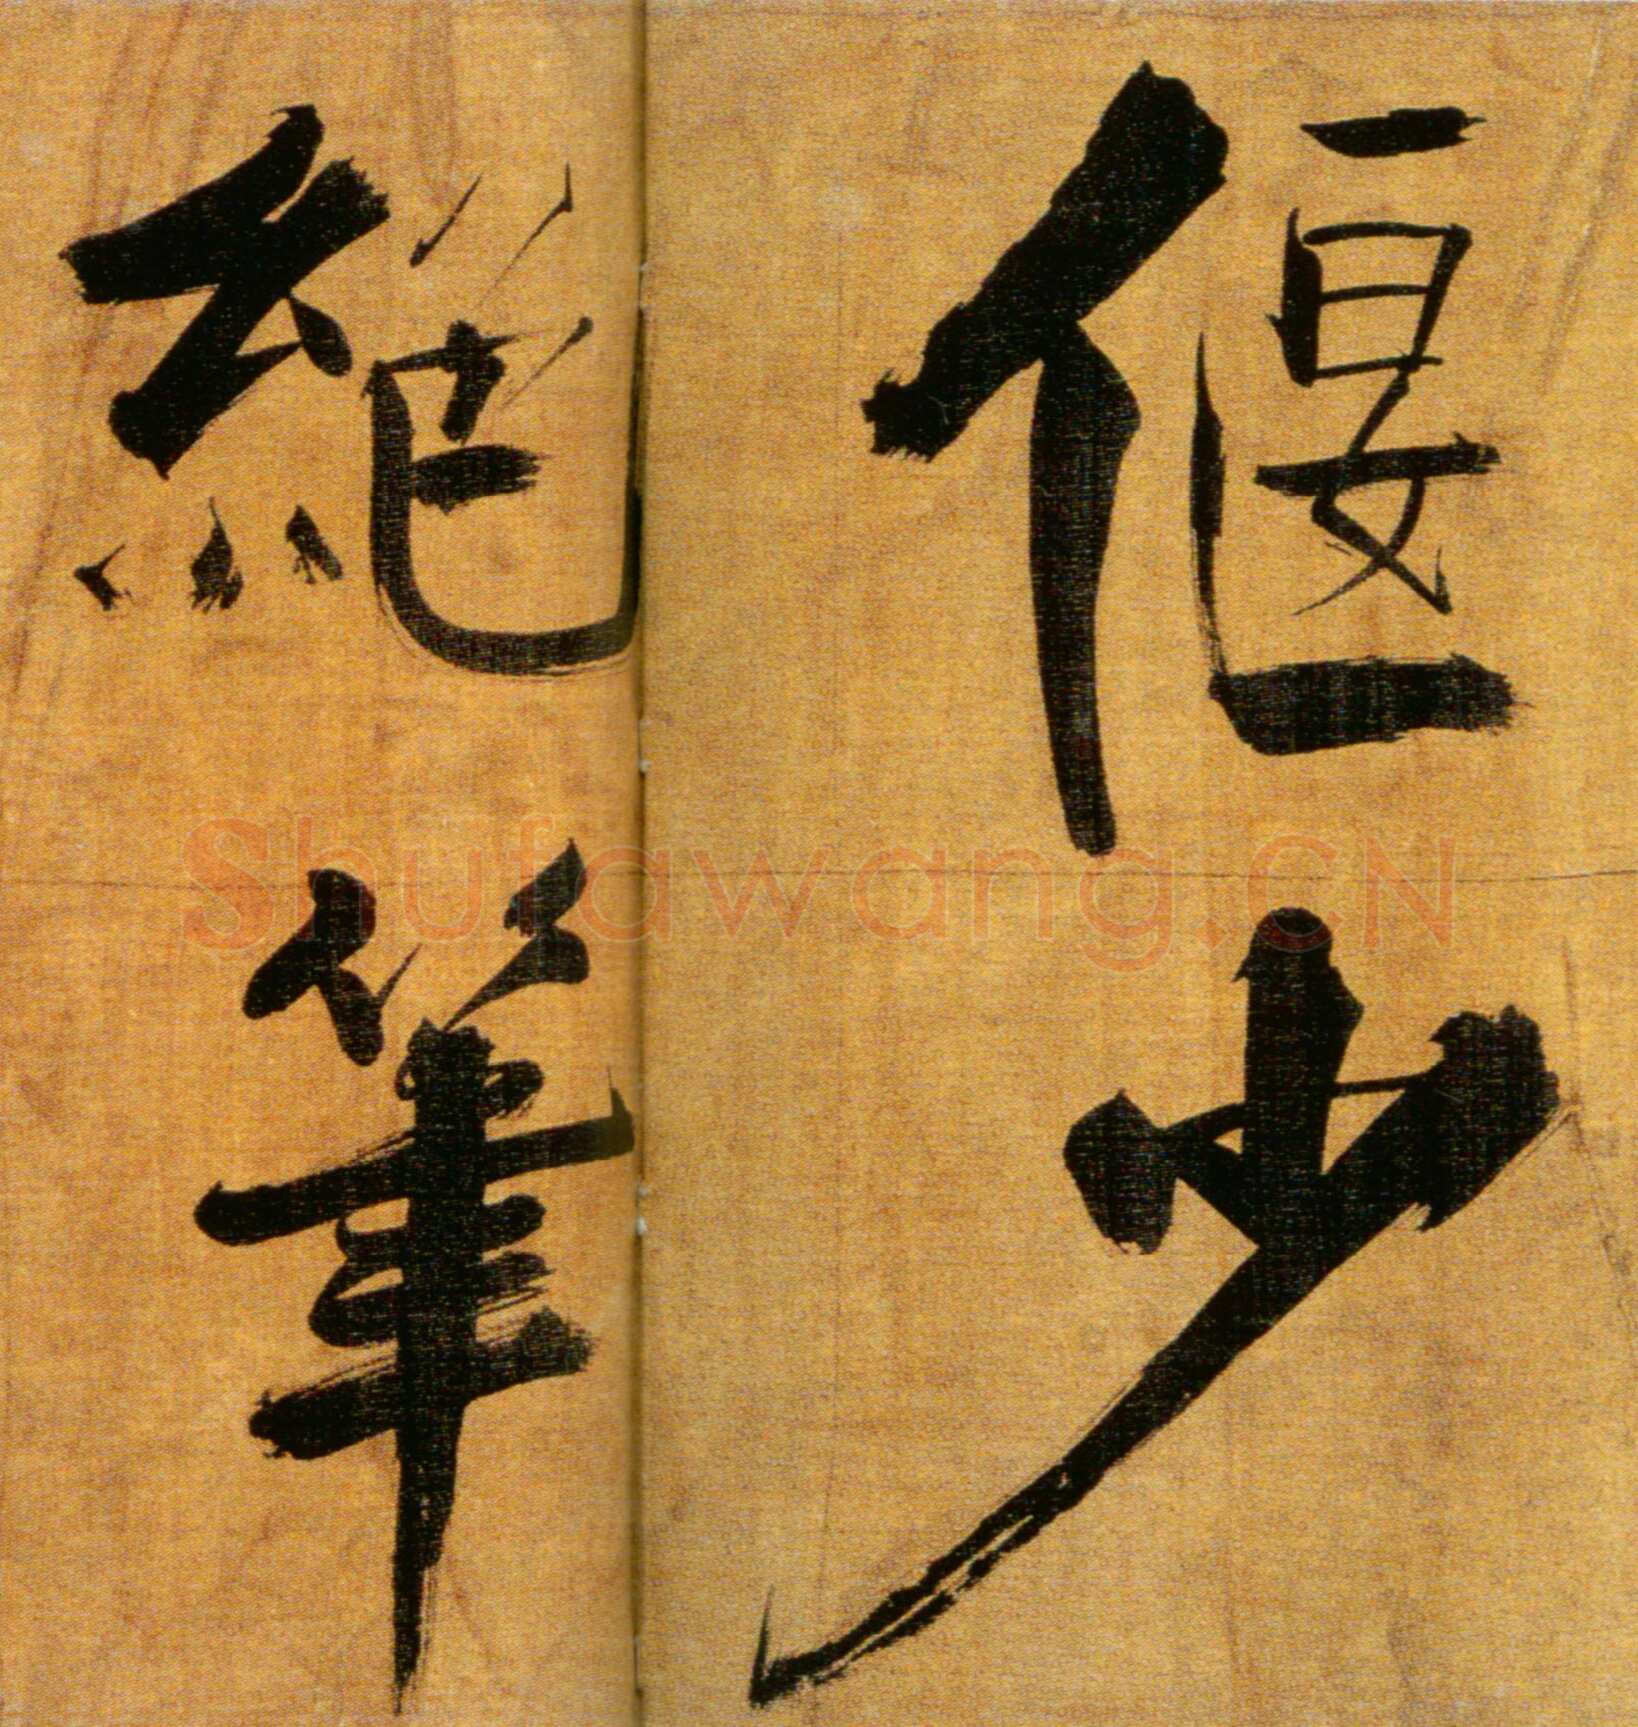 偃少
絶筆
Shufawang.CN